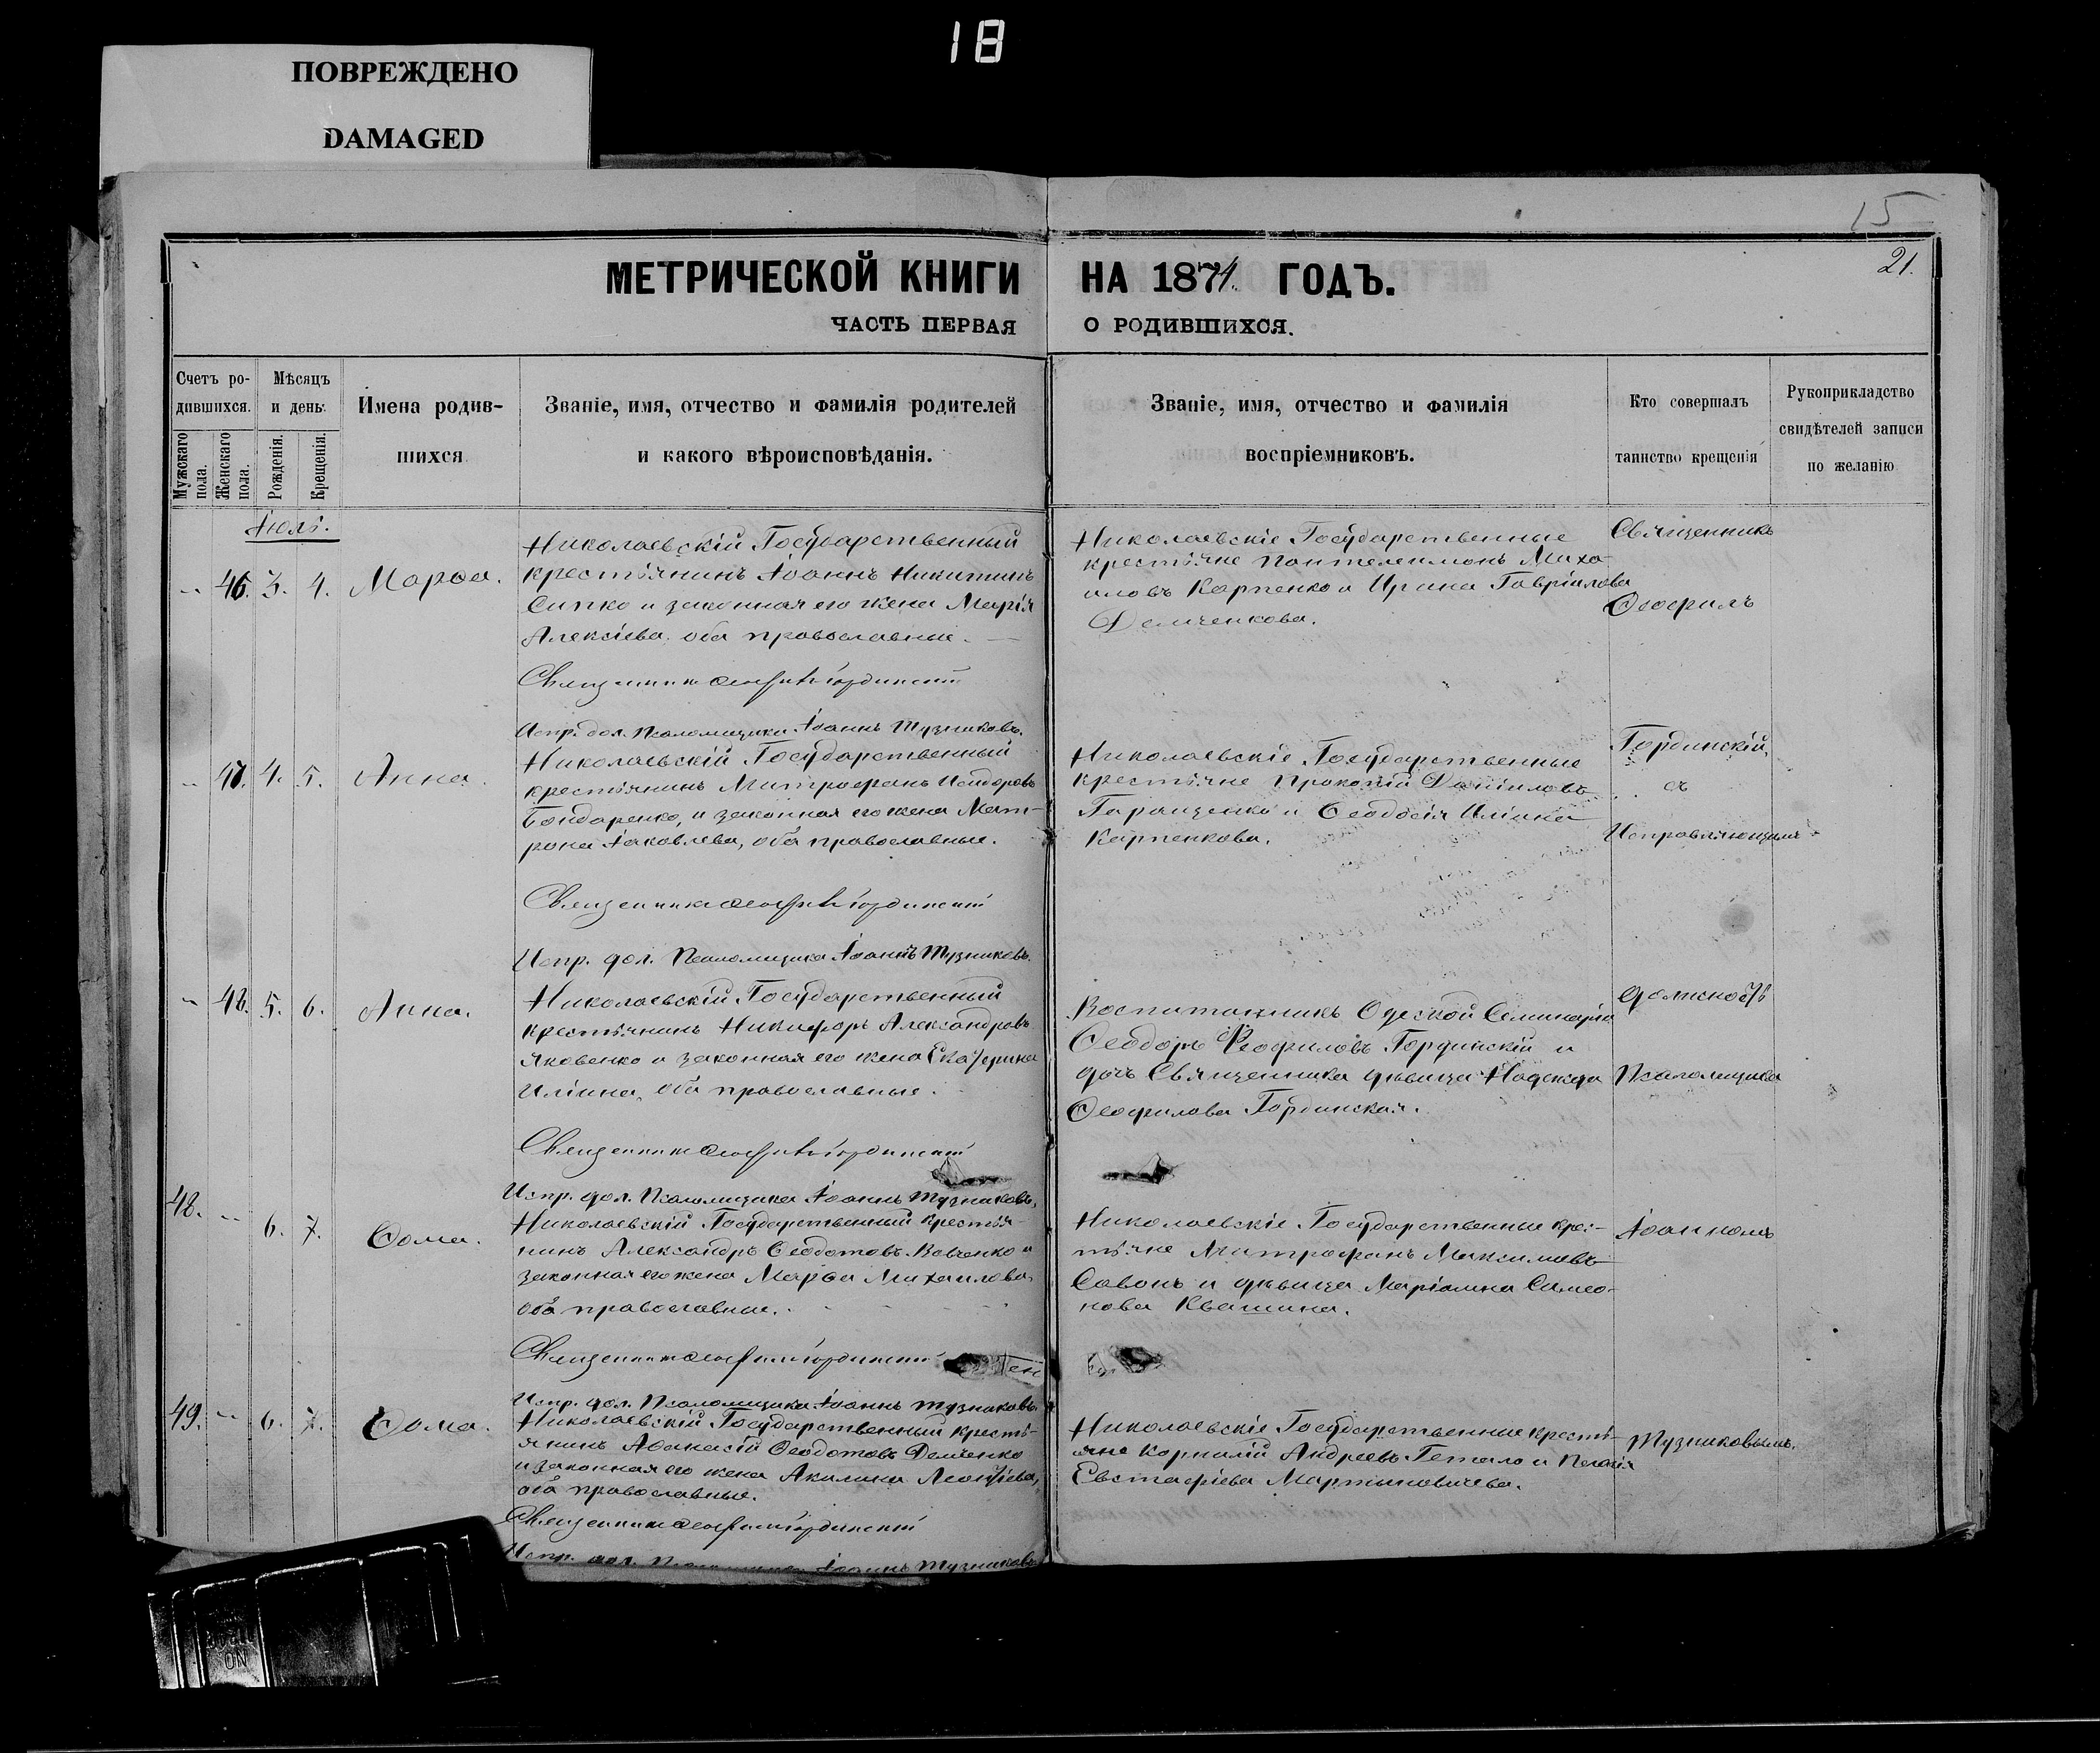 18
ПОВРЕЖДЕНО
DAMAGED
15
21.
МЕТРИЧЕСКОЙ КНИГИ НА 1871. ГОДЪ.
ЧАСТЬ ПЕРВАЯ О РОДИВШИХСЯ.
Счетъ ро-
дившихся.
Мужскаго пола.
Женскаго пола.
Мѣсяцъ
и день.
Рожденія.
Крещенія.
Имена родив-
шихся
Званіе, имя, отчество и фамилія родителей
и какого вѣроисповѣданія.
Званіе, имя, отчество и фамилія
воспріемниковъ.
Кто совершалъ
таинство крещенія
Рукоприкладство
свидѣтелей записи
по желанію
Іюль.
46. 3. 4. Марѳа.
Николаевскій Государственный
крестьянинъ Іоаннъ Никитинъ
Сипко и законная его жена Марія
Алексіева, оба православные.
Священникъ Ѳеофилъ Гординскій
Испр. дол. Псаломщика Іоаннъ Тузниковъ.
Николаевскіе Государственные
крестьяне Пантелеимонъ Миха-
иловъ Карпенко и Ирина Гавріилова
Демченкова.
Священникъ
Ѳеофилъ
47. 4. 5. Анна.
Николаевскій Государственный
крестьянинъ Митрофанъ Исидоровъ
Бондаренко, и законная его жена Мат-
рона Іаковлева, оба православные.
Священникъ Ѳеофилъ Гординскій
Испр. дол. Псаломщика Іоаннъ Тузниковъ.
Николаевскіе Государственные
крестьяне Прокопій Даніиловъ
Геращенко и Ѳеодосія Иліина
Карпенкова.
Гординскій,
съ
Исправляющимъ
48. 5. 6. Анна.
Николаевскій Государственный
крестьянинъ Никифоръ Александровъ
Яковенко и законная его жена Екатерина
Иліина, оба православные.
Священникъ Ѳеофилъ Гординскій
Испр. дол. Псаломщика Іоаннъ Тузниковъ.
Воспитанникъ Одеской Семинаріи
Ѳеодоръ Ѳеофиловъ Гординскій и
дочь Священника дѣвица Надежда
Ѳеофилова Гординская.
должность
Псаломщика
48. 6. 7. Ѳома.
Николаевскій Государственный крестья-
нинъ Александръ Ѳеодотовъ Вовченко и
законная его жена Марѳа Михаилова,
оба православные.
Священникъ Ѳеофилъ Гординскій
Испр. дол. Псаломщика Іоаннъ Тузниковъ.
Николаевскіе Государственные крес-
тьяне Митрофанъ Максимовъ
Савонъ и дѣвица Маріамна Симео-
нова Квашина.
Іоанномъ
49. 6. 7. Ѳома.
Николаевскій Государственный кресть-
янинъ Аѳанасій Ѳеодотовъ Демченко
и законная его жена Акилина Леонтіева,
оба православные.
Священникъ Ѳеофилъ Гординскій
Испр. дол. Псаломщика Іоаннъ Тузниковъ
Николаевскіе Государственные кресть-
яне Корнилій Андреевъ Гетало и Пелагія
Евстафіева Мартыновичева.
Тузниковымъ.